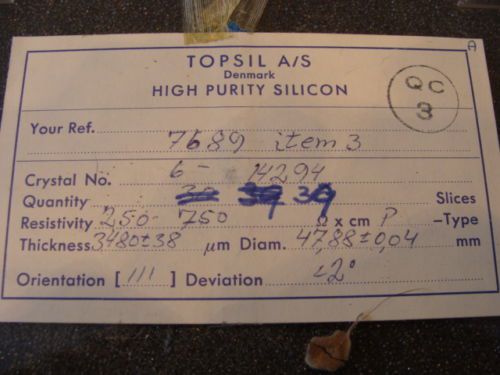 A
TOPSIL A/S
Denmark
HIGH PURITY SILICON
QC
3
Your Ref. 7689 item 3
Crystal No. 6- 14294
Quantity 39 Slices
Resistivity 250- 750 Ω x cm P -Type
Thickness 3480±38 µm Diam. 47,88±0,04 mm
Orientation [111] Deviation <2°